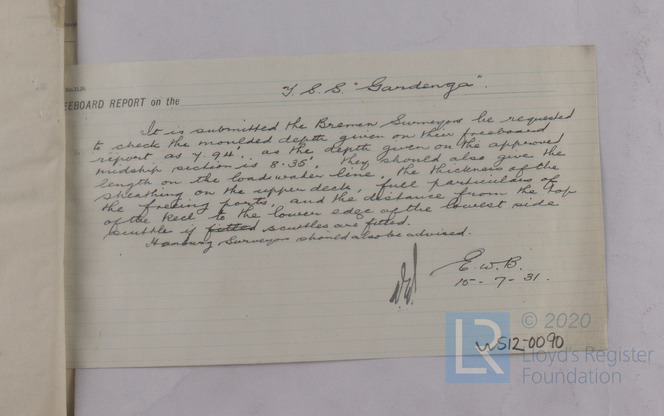 EEBOARD REPORT on the
T.S.S "Gardenga".
It is submitted the Bremen Surveyors be requested
to check the moulded depth given on their freeboard
report as 7.94', as the depth given on the approved
midship section is 8.35', they should also give the
length on the loadwater line, the thickness of the
sheathing on the upper deck, full particulars of
the freeing ports, and the distance from the top
of the keel to the lower edge of the lowest side
scuttle if fitted scuttles are fitted.
Hamburg Surveyors should also be advised.
E.W.B.
15-7-31.
WS12-0090
© 2020
LR
Lloyd's Register
Foundation